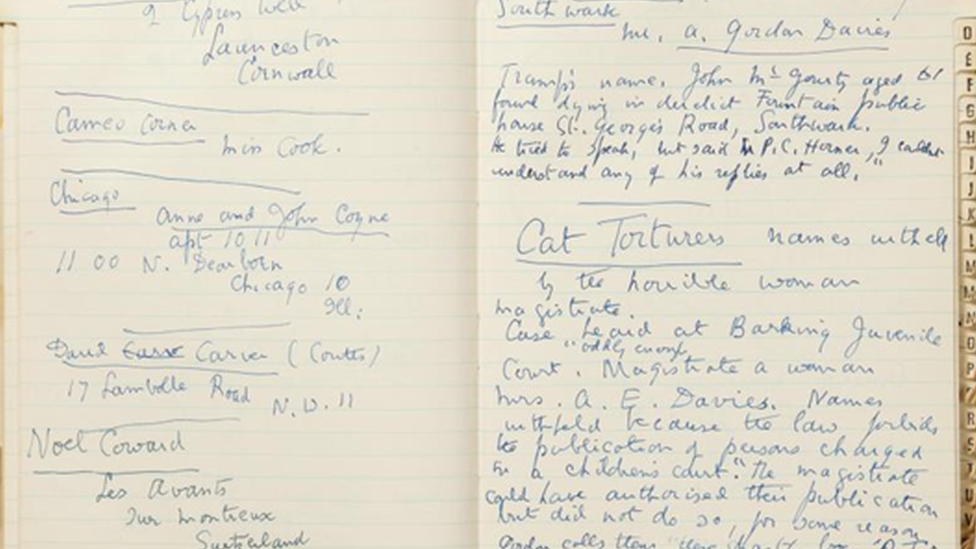 9 Cypress Well
Launceston
Cornwall
Cameo Corner
Miss Cook.
Chicago
Anne and John Coyne
apt 10 11
11 00 N. Dearborn
Chicago 10
Ill:
David Carver (Coutts)
17 Lambolle Road
N.W. 11
Noel Coward
Les Avants
Sur Montreux
Switzerland
Southwark
Mr. A. Gordon Davies
Tramp's name. John McGourty aged 61
found dying in derelict Fountain public
house St. George's Road, Southwark.
He tried to speak, but said P.C. Horner, "I couldn't
understand any of his replies at all."
Cat Torturers names witheld
by the horrible woman
magistrate.
Case heard at Barking Juvenile
"oddly enough,
Court. Magistrate a woman
Mrs. A. E. Davies. Names
withheld because the law forbids
the publication of persons charged
in a children's court." The magistrate
could have authorised their publication
but did not do so, for some reason
Gordon calls them
D
E
F
G
H
I
J
L
M
N
O
P
R
S
T
U
V